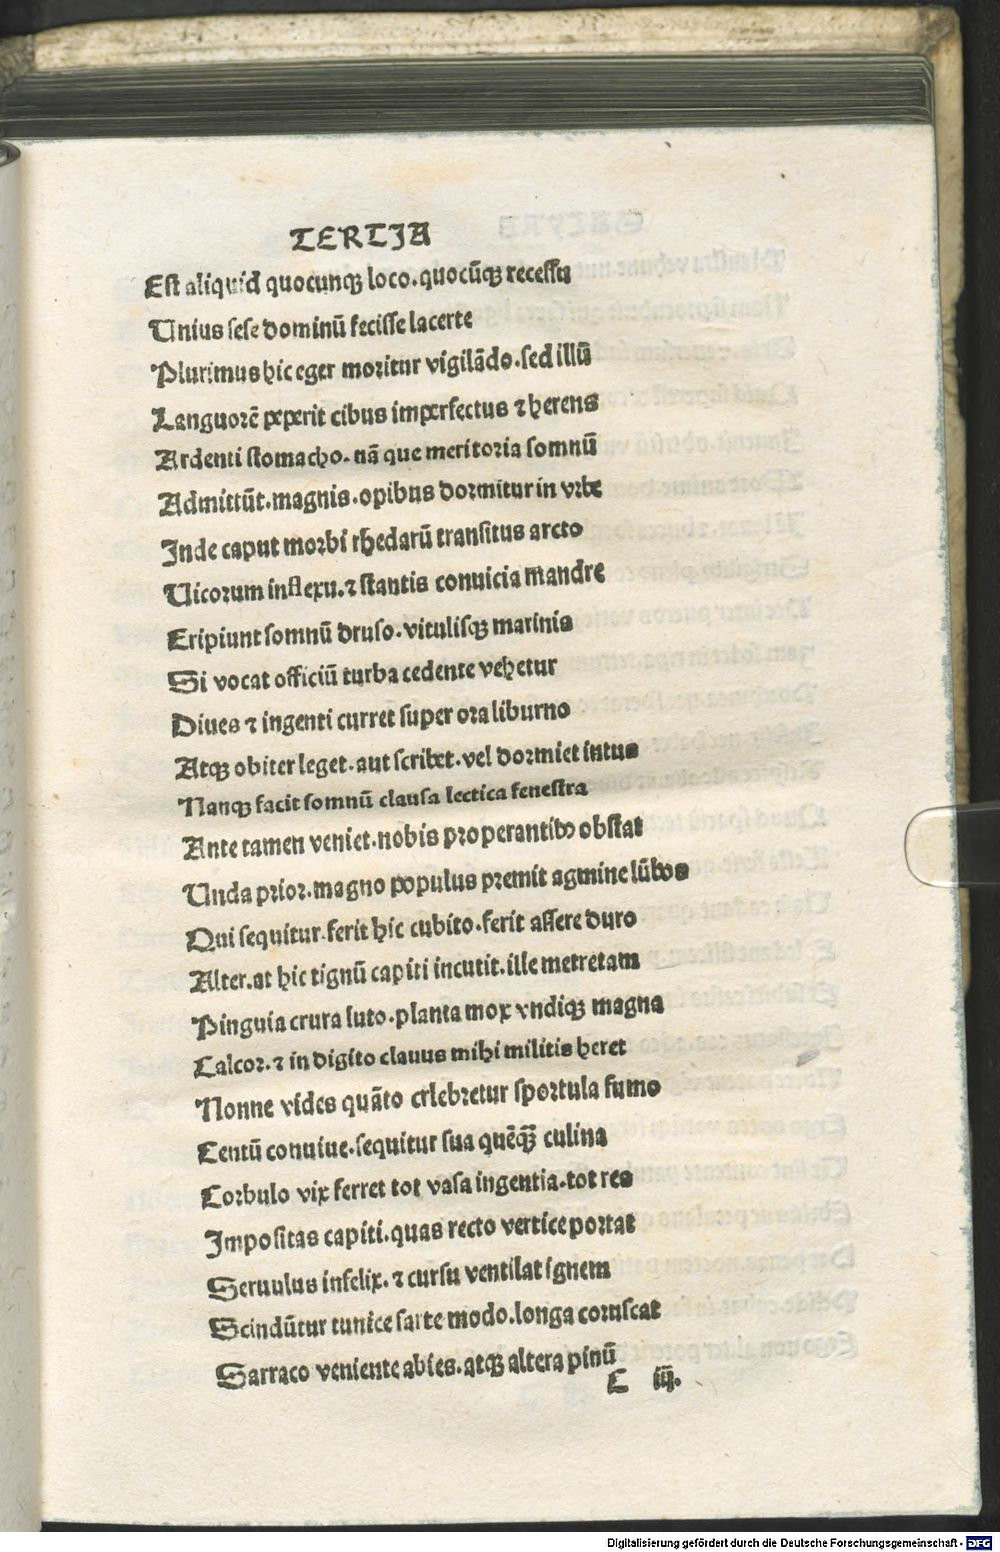 TERTIA
Est aliquid quocunqꝫ loco.quocūqꝫ recessu
Unius sese dominū fecisse lacerte
Plurimus hic eger moritur vigilādo.sed illū
Languorē peperit cibus imperfectus ⁊ herens
Ardenti stomacho.nā que meritoria somnū
Admittūt.magnis.opibus dormitur in vrbe
Inde caput morbi rhedarū transitus arcto
Uicorum inflexu.⁊ stantis conuicia mandre
Eripiunt somnū druso.vitulisqꝫ marinis
Si vocat officiū turba cedente vehetur
Diues ⁊ ingenti curret super ora liburno
Atqꝫ obiter leget.aut scribet.vel dormiet intus
Nanqꝫ facit somnū clausa lectica fenestra
Ante tamen veniet.nobis properantibꝰ obstat
Unda prior.magno populus premit agmine lūbos
Qui sequitur.ferit hic cubito.ferit assere duro
Alter.at hic tignū capiti incutit.ille metretam
Pinguia crura luto.planta mox vndiqꝫ magna
Calcor.⁊ in digito clauus mihi militis heret
Nonne vides quāto crlebretur sportula fumo
Centū conuiue.sequitur sua quēqꝫ culina
Corbulo vix ferret tot vasa ingentia.tot res
Impositas capiti.quas recto vertice portat
Seruulus infelix.⁊ cursu ventilat ignem
Scindūtur tunice sarte modo.longa coruscat
Sarraco veniente abies.atqꝫ altera pinū
C iij.
Digitalisierung gefördert durch die Deutsche Forschungsgemeinschaft - DFG